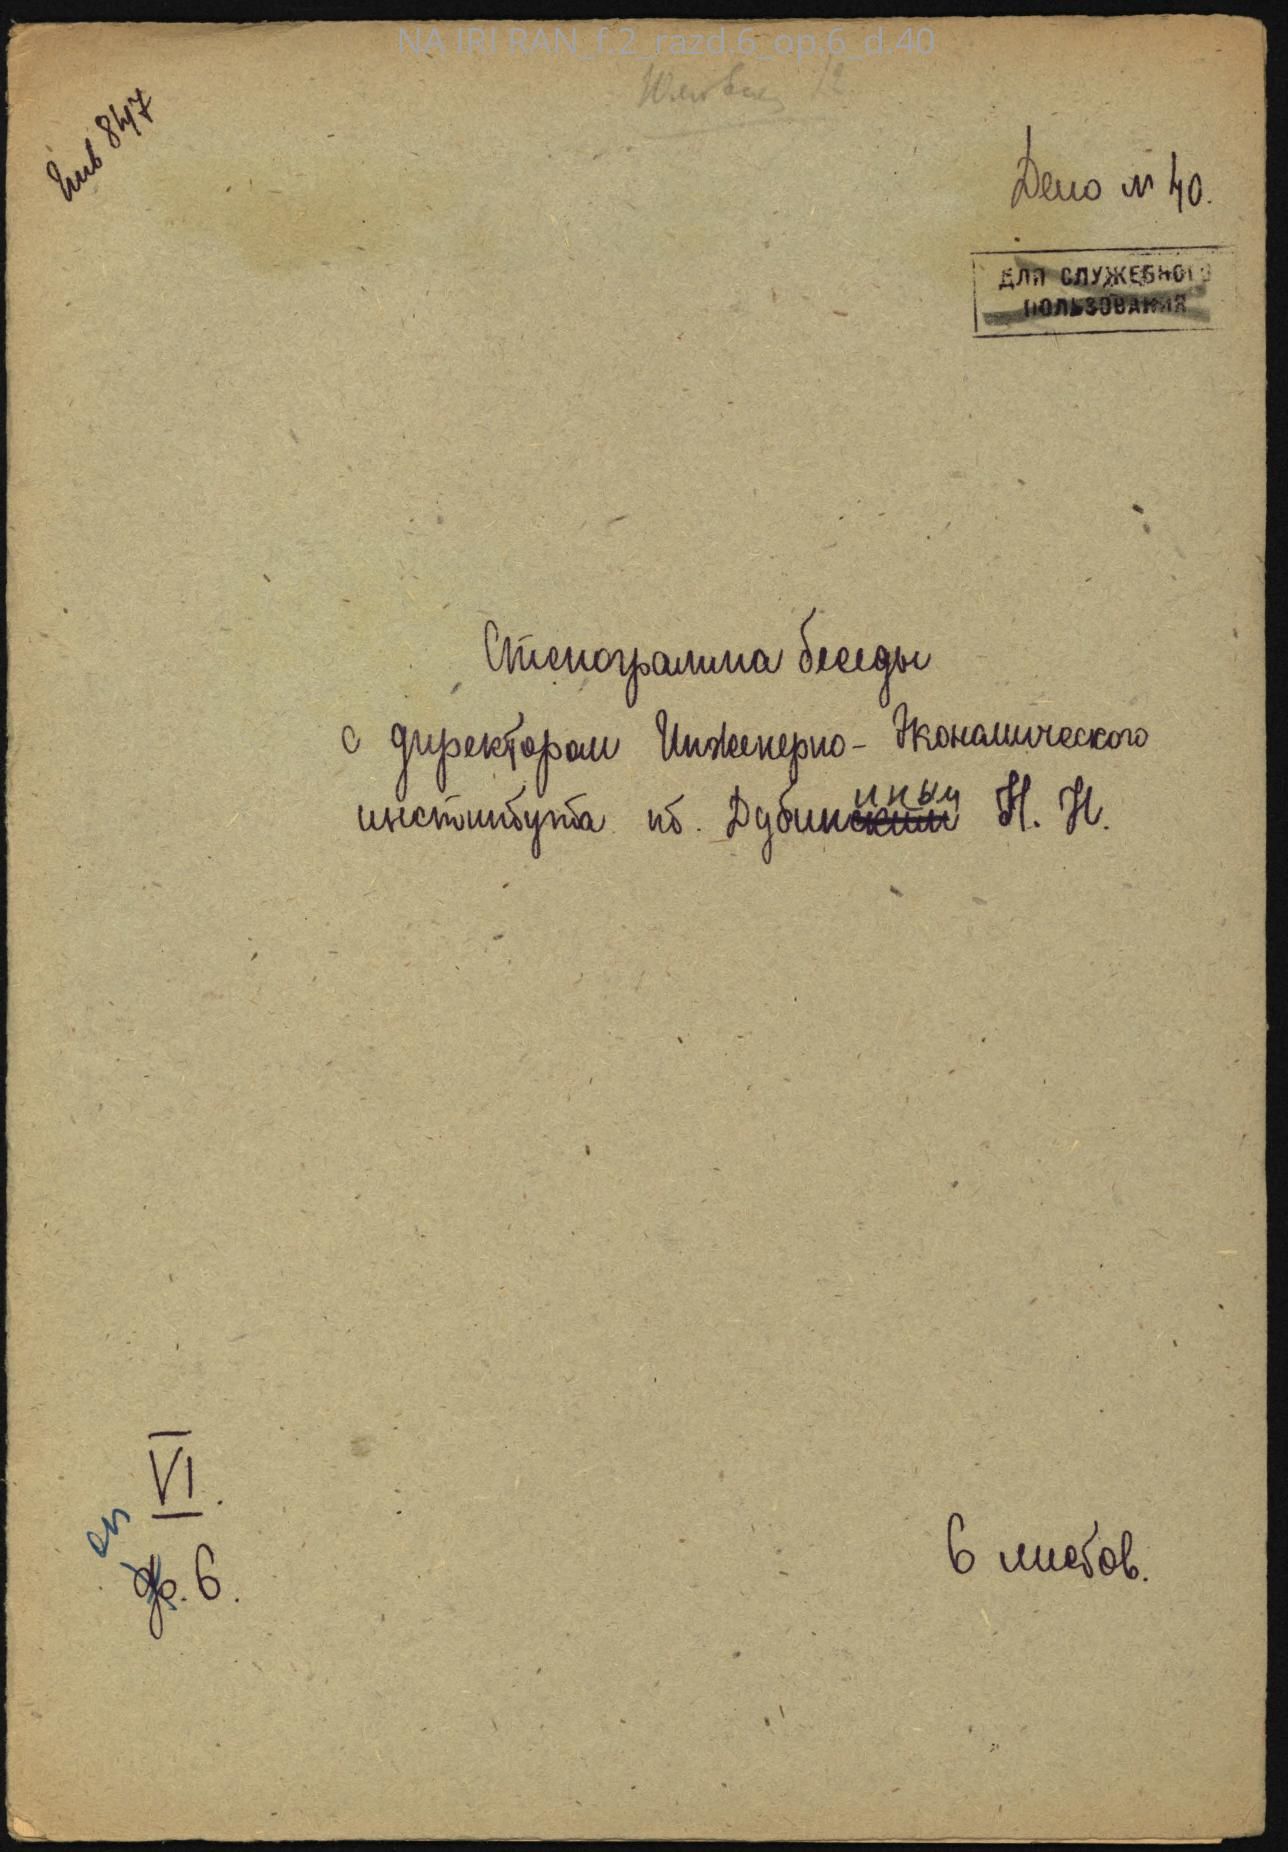 NA IRI RAN_f.2_razd.6_op.6_d.40
Инв 847
Дело N 40.
ДЛЯ СЛУЖЕБНОГО
ПОЛЬЗОВАНИЯ
Стенограмма беседы
с директором Инженерно-Экономического
иным
института тов. Дубинским Н. Н.
VI.
оп
ф. 6.
6 листов.